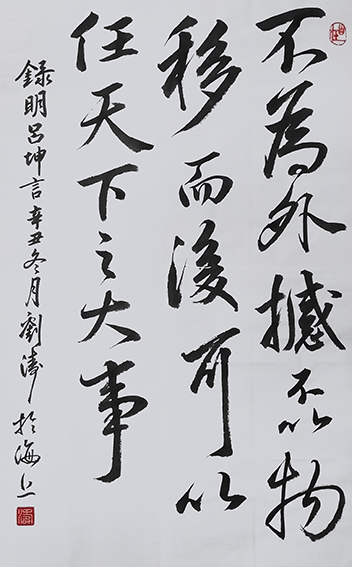 不為外撼不以物
移而後可以
任天下之大事
錄明呂坤言辛丑冬月劉濤於海上